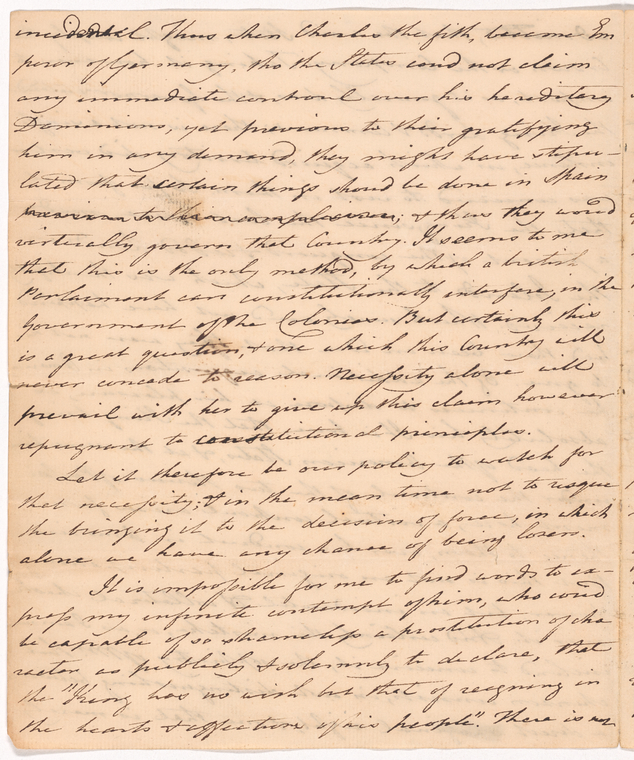 incidental. Thus when Charles the fifth, became Em
peror of Germany, tho the States could not claim
any immediate controul over his hereditary
Dominions, yet previous to their gratifying
him in any demand, they might have stipu-
lated that certain things should be done in Spain
previous to their compliance; & thus they would
virtually govern that Country. It seems to me
that this is the only method, by which a british
Parlaiment can constitutionally interfere, in the
Government of the Colonies. But certainly this
is a great question, & one which this Country will
never concede to reason. Necessity alone will
prevail with her to give up this claim however
repugnant to constitutional principles.
Let it therefore be our policy to watch for
that necessity; & in the mean time not to risque
the bringing it to the decision of force, in which
alone we have any chance of being losers.
It is impossible for me to find words to ex-
press my infinite contempt of him, who could
be capable of so shameless a prostitution of cha
racter as publicly & solemnly to declare, that
the "King has no wish but that of reigning in
the hearts & affections of his people". There is not